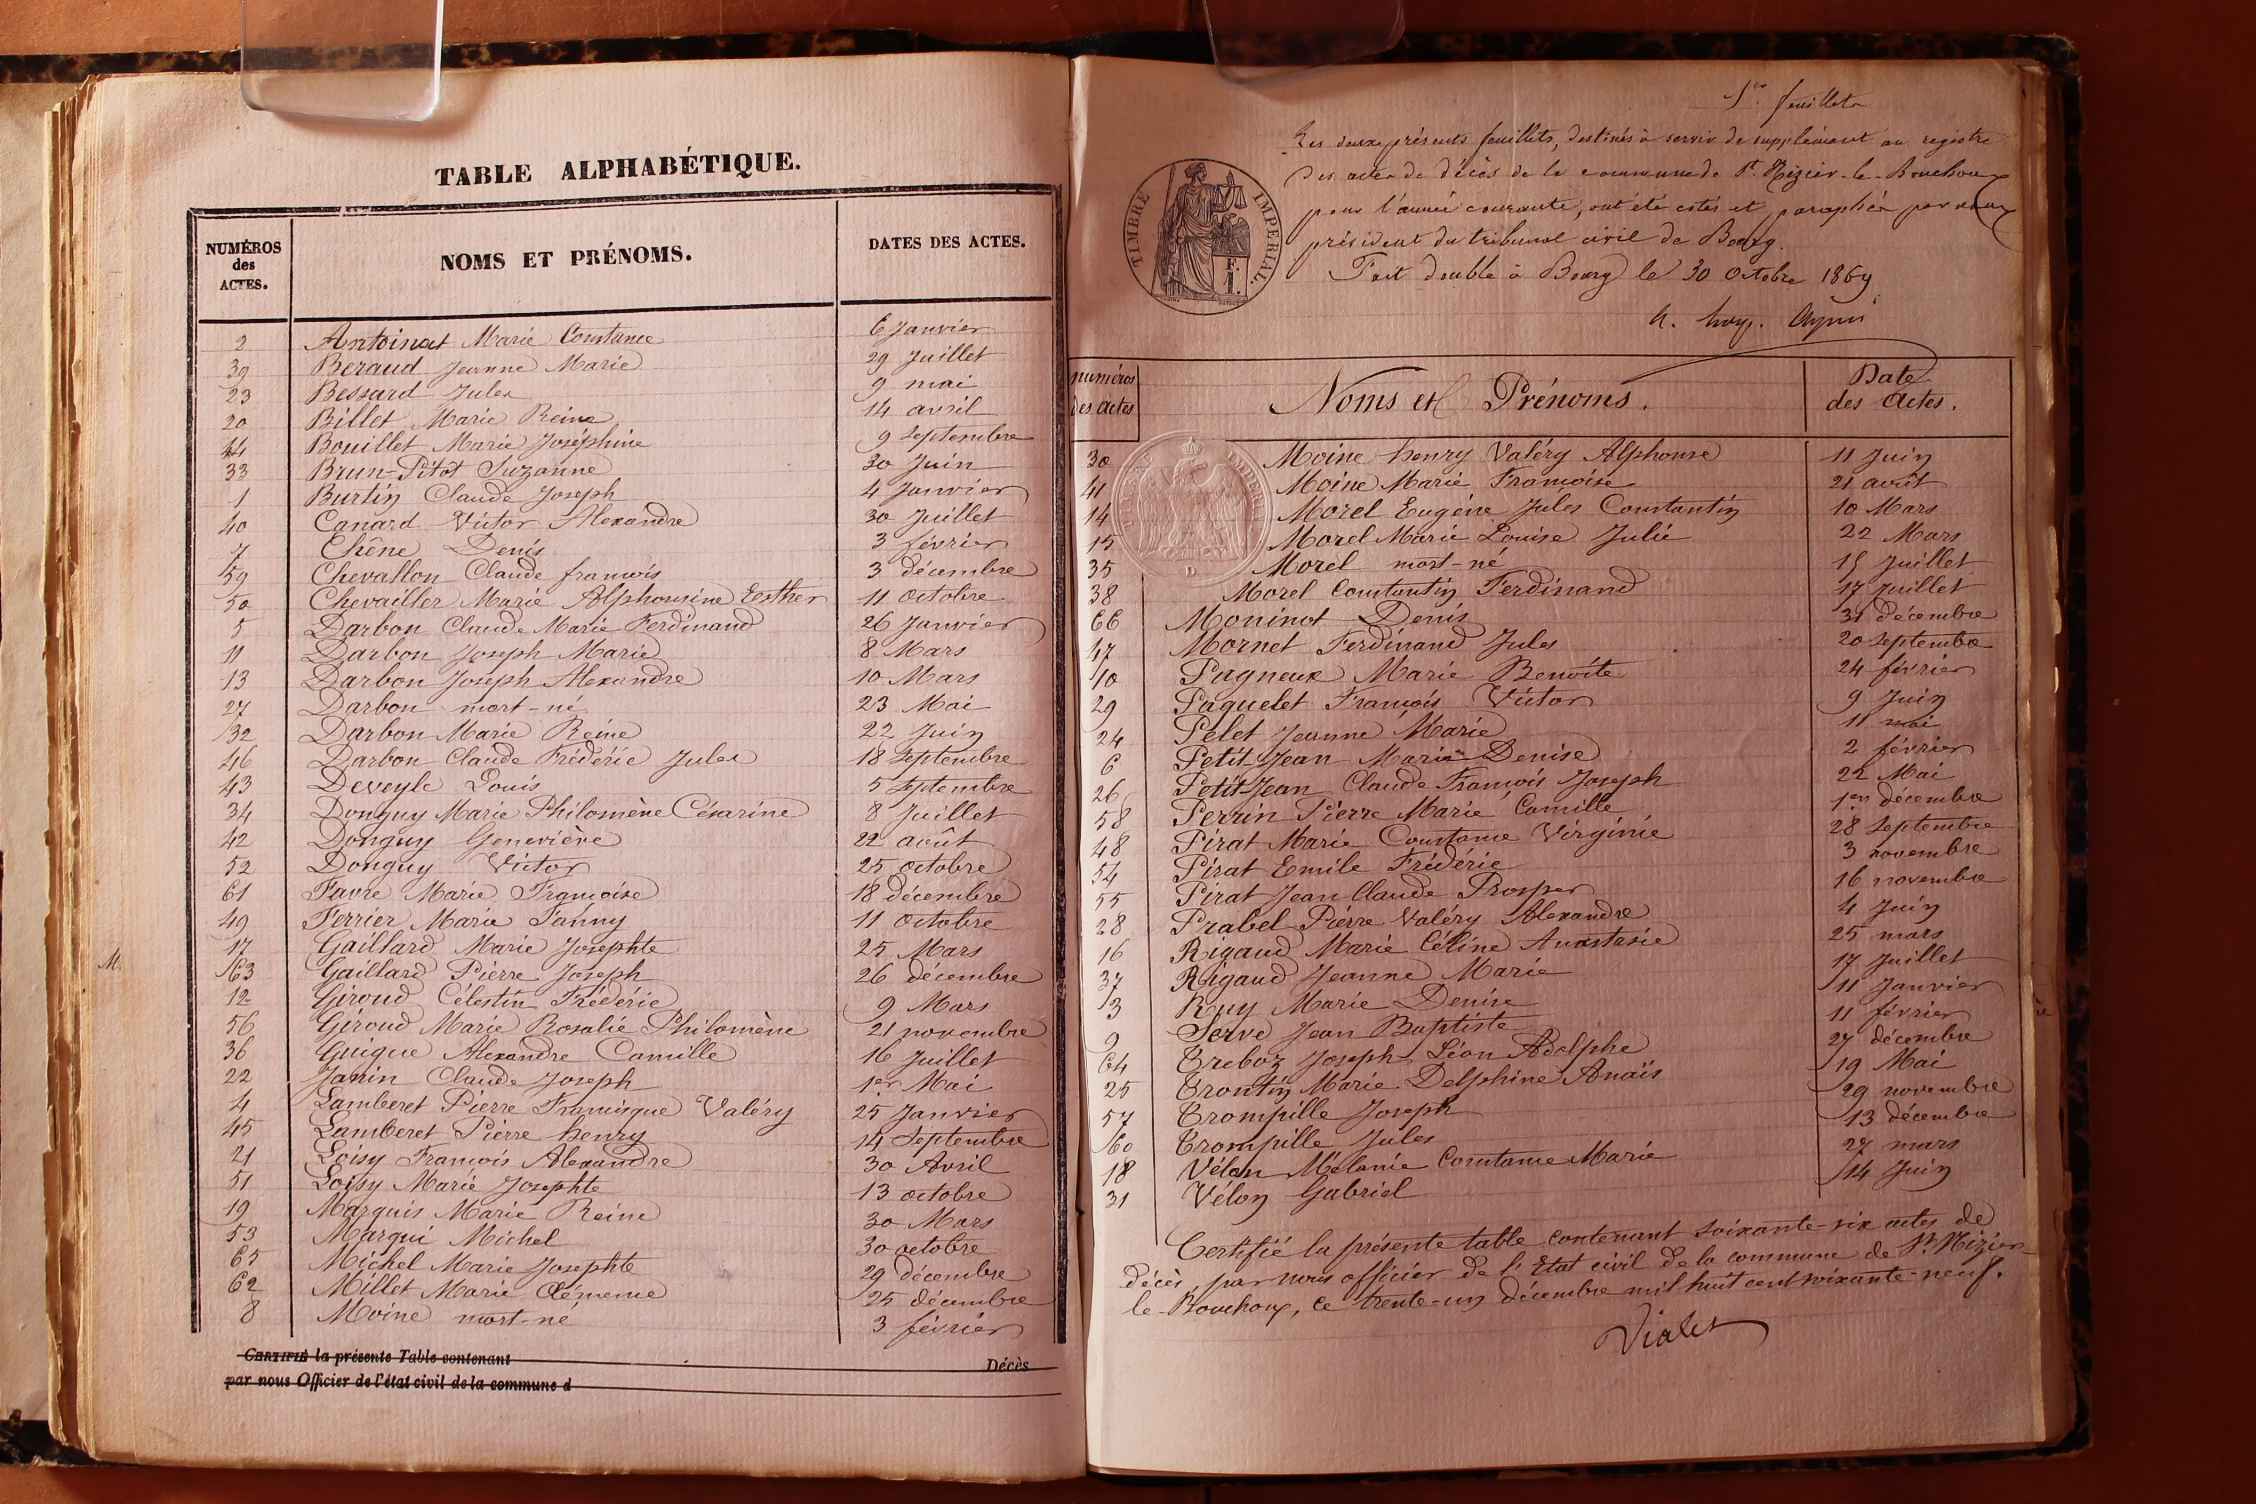 TABLE ALPHABÉTIQUE.
NUMÉROS des ACTES. NOMS ET PRÉNOMS. DATES DES ACTES.
2 Antoinat Marie Constance 6 Janvier
39 Beraud Jeanne Marie 29 Juillet
23 Bessard Jules 9 mai
20 Billet Marie Reine 14 avril
44 Bouillet Marie Joséphine 9 Septembre
33 Brun-Pitôt Suzanne 30 Juin
1 Burtin Claude Joseph 4 Janvier
40 Canard Victor Alexandre 30 Juillet
7 Chêne Denis 3 février
59 Chevallon Claude françois 3 décembre
50 Chevailler Marie Alphonsine Esther 11 octobre
5 Darbon Claude Marie Ferdinand 26 Janvier
11 Darbon Joseph Marie 8 Mars
13 Darbon Joseph Alexandre 10 Mars
27 Darbon mort-né 23 Mai
32 Darbon Marie Reine 22 Juin
46 Darbon Claude Frédéric Jules 18 Septembre
43 Deveyle Louis 5 Septembre
34 Donguy Marie Philomène Césarine 8 Juillet
42 Donguy Geneviève 22 août
52 Donguy Victor 25 octobre
61 Favre Marie Françoise 18 décembre
49 Ferrier Marie Fanny 11 octobre
17 Gaillard Marie Josephte 25 Mars
63 Gaillard Pierre Joseph 26 décembre
12 Giroud Célestin Frédéric 9 Mars
56 Giroud Marie Rosalie Philomène 21 novembre
36 Guigue Alexandre Camille 16 Juillet
22 Janin Claude Joseph 1er Mai
4 Lamberet Pierre Francisque Valéry 25 Janvier
45 Lamberet Pierre henry 14 Septembre
21 Loisy François Alexandre 30 Avril
51 Loisy Marie Josephte 13 octobre
19 Marquis Marie Reine 30 Mars
53 Marqui Michel 30 octobre
65 Michel Marie Josephte 29 décembre
62 Millet Marie Clémence 25 décembre
8 Moine mort-né 3 février
CERTIFIÉ la présente Table contenant Décès
par nous Officier de l'état civil de la commune d
M.
1er feuillet
Les deux présents feuillets, destinés à servir de supplément au registre
des actes de décès de la commune de St. Nizier-le-Bouchoux
pour l'année courante, ont été cotés et paraphés par nous
président du tribunal civil de Bourg.
Fait double à Bourg le 30 Octobre 1869
TIMBRE IMPÉRIAL.
F. 1.
numéros des actes Noms et Prénoms. Date des Actes.
30 Moine henry Valéry Alphonse 11 Juin
41 Moine Marie Françoise 21 août
14 Morel Eugène Jules Constantin 10 Mars
15 Morel Marie Louise Julie 22 Mars
35 Morel mort-né 15 Juillet
38 Morel Constantin Ferdinand 17 Juillet
66 Moninot Denis 31 décembre
47 Mornet Ferdinand Jules 20 Septembre
10 Pagneux Marie Benoite 24 février
29 Paquelet François Victor 9 Juin
24 Pelet Jeanne Marie 11 mai
6 Petit Jean Marie Denise 2 février
26 Petit Jean Claude François Joseph 22 Mai
58 Perrin Pierre Marie Camille 1er décembre
48 Pirat Marie Constance Virginie 28 Septembre
54 Pirat Emile Frédéric 3 novembre
55 Pirat Jean Claude Prosper 16 novembre
28 Prabel Pierre Valéry Alexandre 4 Juin
16 Rigaud Marie Céline Anastasie 25 mars
37 Rigaud Jeanne Marie 17 Juillet
3 Ruy Marie Denise 11 Janvier
9 Serve Jean Baptiste 11 février
64 Treboz Joseph Léon Adolphe 27 décembre
25 Trontin Marie Delphine Anaïs 19 Mai
57 Trompille Joseph 29 novembre
60 Trompille Jules 13 décembre
18 Vélon Mélanie Constance Marie 27 mars
31 Vélon Gabriel 14 Juin
Certifié la présente table contenant soixante-six actes de
décès, par nous officier de l'Etat civil de la commune de St. Nizier-
le-Bouchoux, ce trente-un décembre mil huit cent soixante-neuf.
Vialet